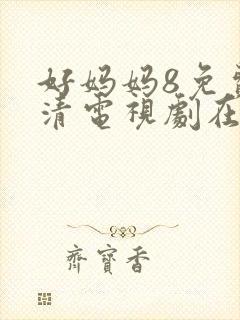 好妈妈8免费
清電視劇在
齊寶香